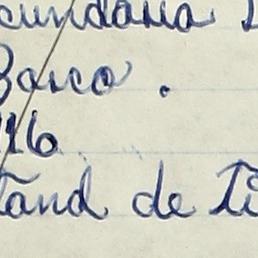 cundaria
Barco.
16
tand de Ti